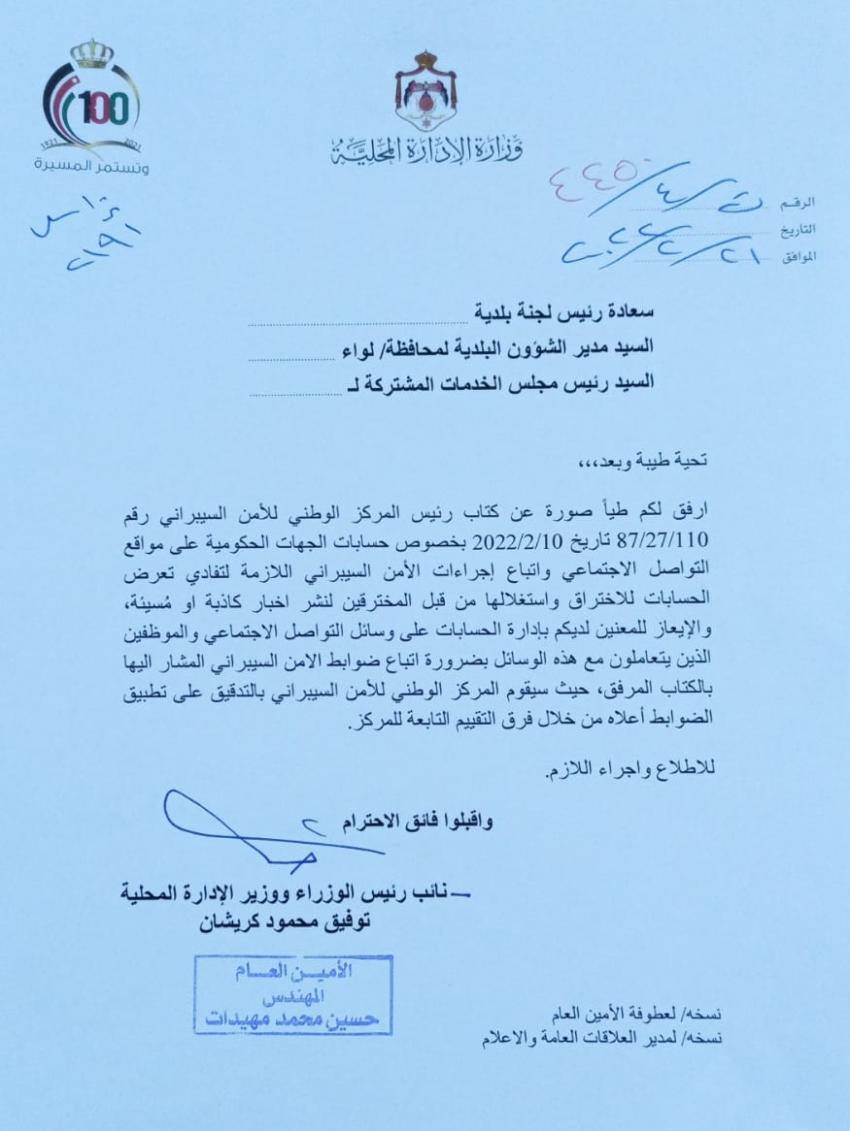 100
1921 2021
وتستمر المسيرة
وزارة الإدارة المحلية
الرقم
التاريخ ٢١/٢/٢٠٢٢
الموافق
سعادة رئيس لجنة بلدية
السيد مدير الشؤون البلدية لمحافظة/ لواء
السيد رئيس مجلس الخدمات المشتركة لـ
تحية طيبة وبعد،،،
ارفق لكم طياً صورة عن كتاب رئيس المركز الوطني للأمن السيبراني رقم
87/27/110 تاريخ 2022/2/10 بخصوص حسابات الجهات الحكومية على مواقع
التواصل الاجتماعي واتباع إجراءات الأمن السيبراني اللازمة لتفادي تعرض
الحسابات للاختراق واستغلالها من قبل المخترقين لنشر اخبار كاذبة او مُسيئة،
والإيعاز للمعنين لديكم بإدارة الحسابات على وسائل التواصل الاجتماعي والموظفين
الذين يتعاملون مع هذه الوسائل بضرورة اتباع ضوابط الامن السيبراني المشار اليها
بالكتاب المرفق، حيث سيقوم المركز الوطني للأمن السيبراني بالتدقيق على تطبيق
الضوابط أعلاه من خلال فرق التقييم التابعة للمركز.
للاطلاع واجراء اللازم.
واقبلوا فائق الاحترام
نائب رئيس الوزراء ووزير الإدارة المحلية
توفيق محمود كريشان
الأمين العام
المهندس
حسين محمد مهيدات
نسخه/ لعطوفة الأمين العام
نسخه/ لمدير العلاقات العامة والاعلام